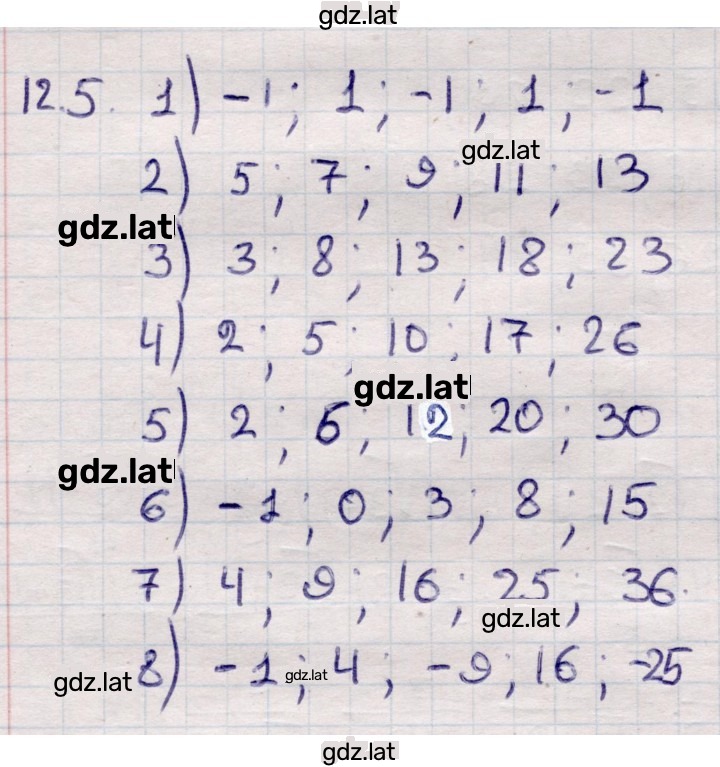 gdz.lat
12.5. 1) -1; 1; -1; 1; -1
gdz.lat
2) 5; 7; 9; 11; 13
gdz.lat
3) 3; 8; 13; 18; 23
4) 2; 5; 10; 17; 26
gdz.lat
5) 2; 6; 12; 20; 30
gdz.lat
6) -1; 0; 3; 8; 15
7) 4; 9; 16; 25; 36.
gdz.lat
gdz.lat 8) -1; gdz.lat 4; -9; 16; -25
gdz.lat